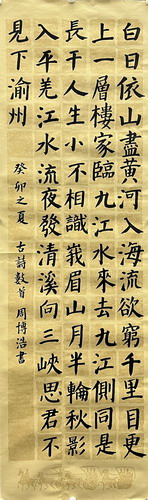 白日依山盡黃河入海流欲窮千里目更
上一層樓家臨九江水來去九江側同是
長干人生小不相識峩眉山月半輪秋影
入平羌江水流夜發清溪向三峽思君不
見下渝州 癸卯之夏 古詩數首 周博浩書